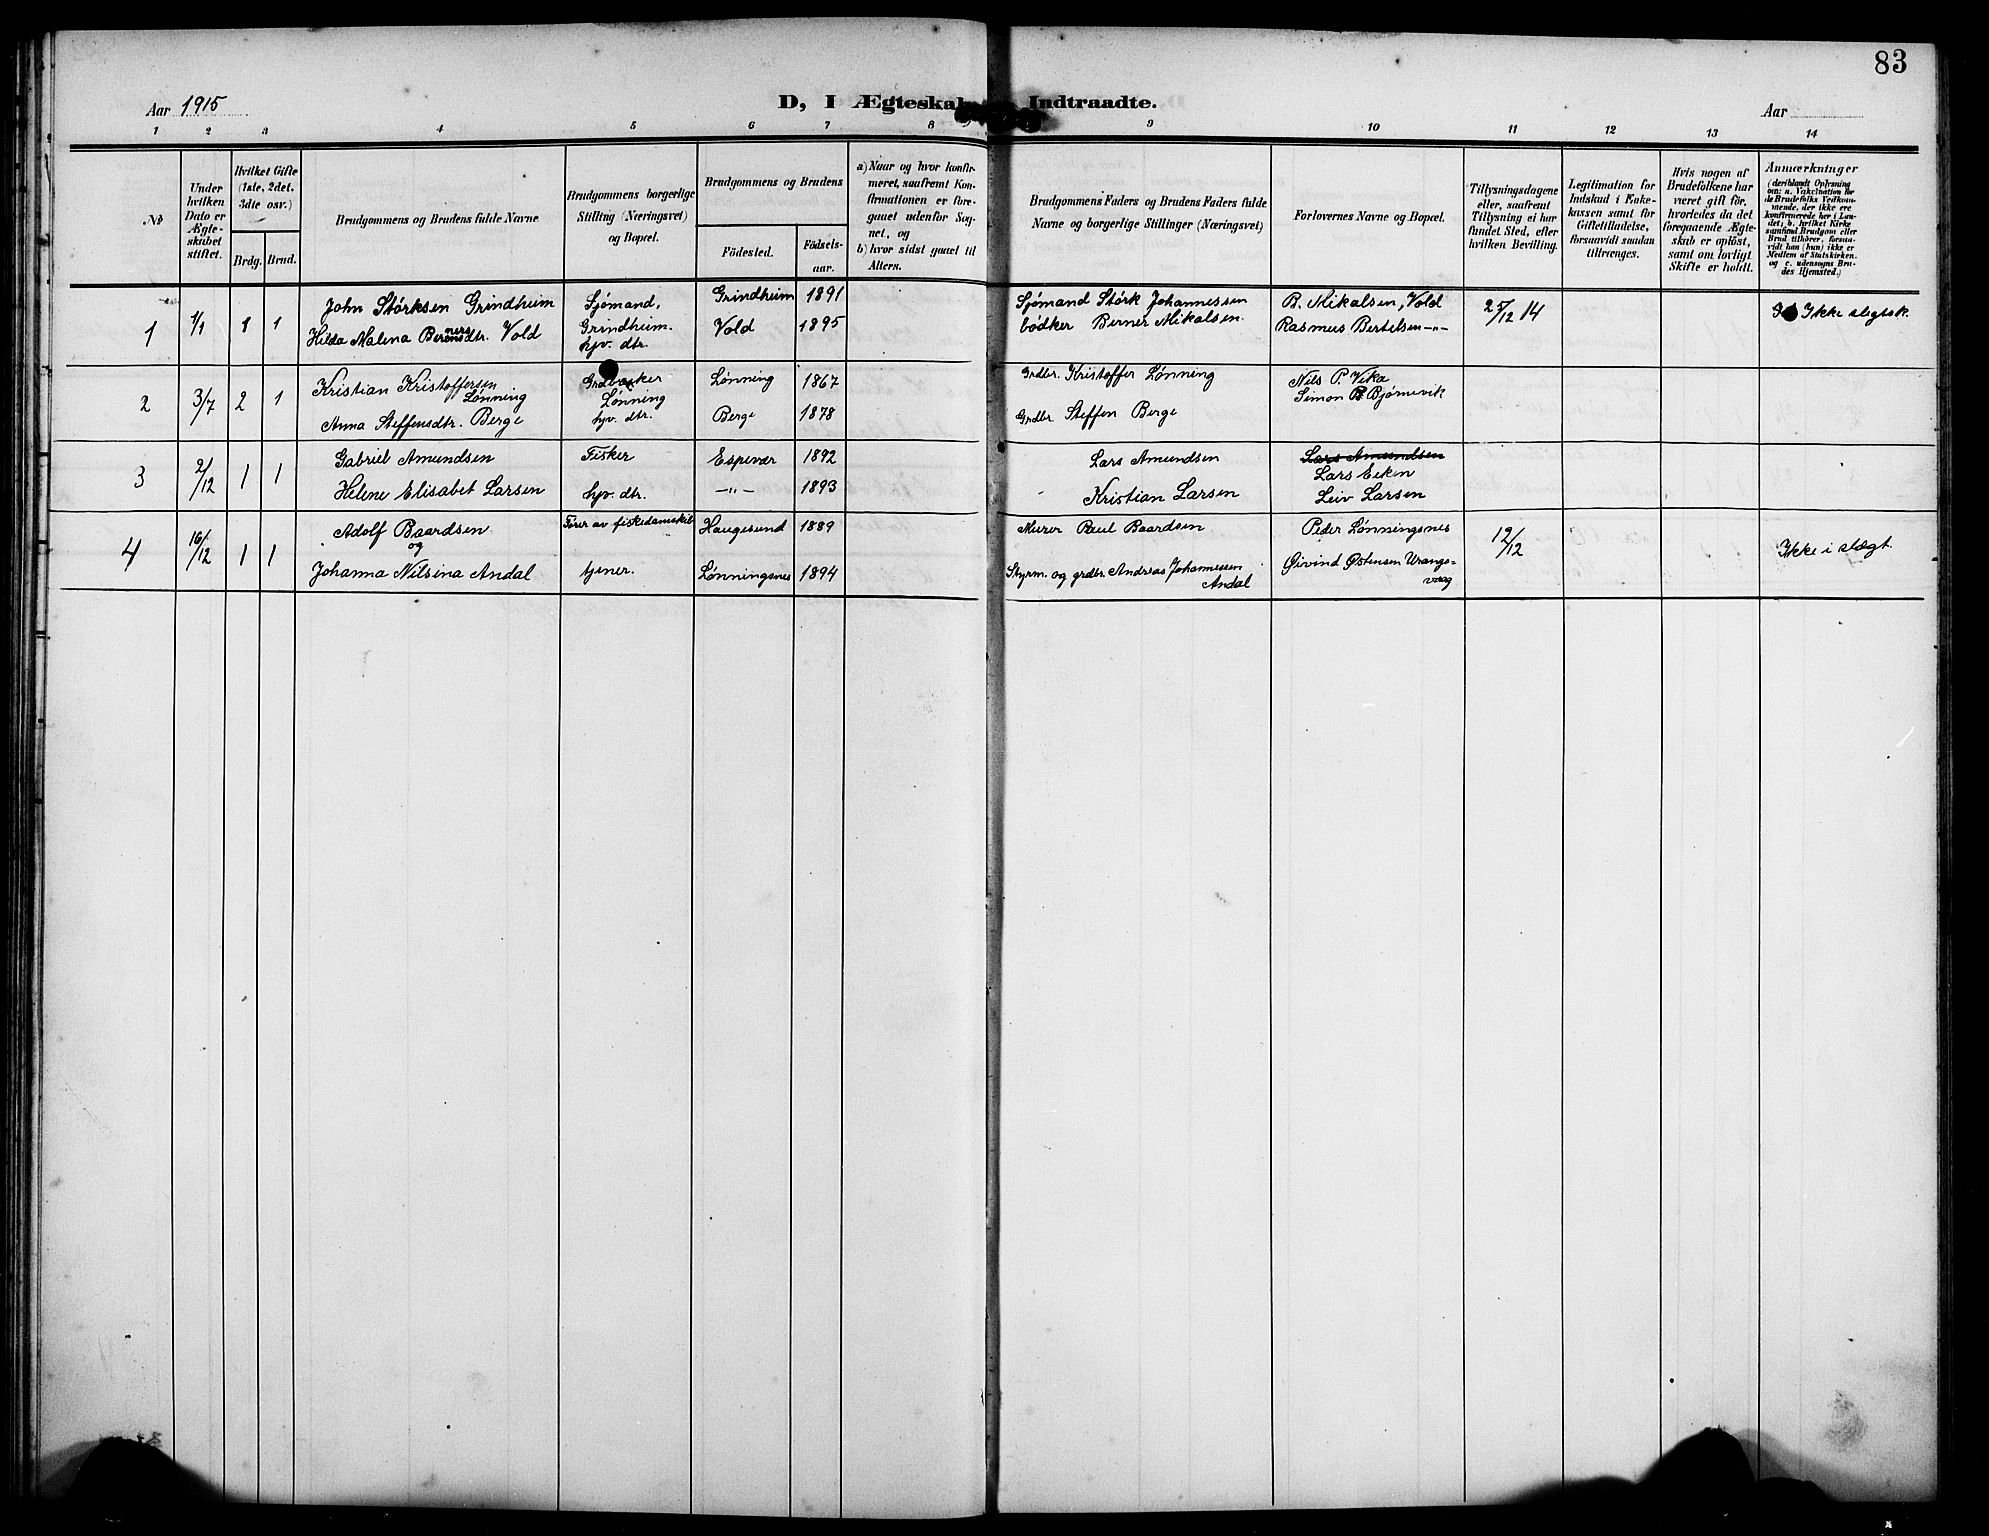 83
Aar 1915
D, I Ægteskab Indtraadte.
Aar
1 2 3 4 5 6 7 8 9 10 11 12 13 14
No
Under
hvilken
Dato er
Ægte-
skabet
stiftet.
Hvilket Gifte
(1ste, 2det,
3dte osv.)
Brdg. Brud.
Brudgommens og Brudens fulde Navne
Brudgommens borgerlige
Stilling (Næringsvei)
og Bopæl.
Brudgommens og Brudens
Födested.
Födsels-
aar.
a) Naar og hvor konfir-
meret, saafremt Kon-
firmationen er fore-
gaaet udenfor Sog-
net, og
b) hvor sidst gaaet til
Alters.
Brudgommens Faders og Brudens Faders fulde
Navne og borgerlige Stillinger (Næringsvei)
Forlovernes Navne og Bopæl.
Tillysningsdagene
eller, saafremt
Tillysning ei har
fundet Sted, efter
hvilken Bevilling.
Legitimation for
Indskud i Enke-
kassen samt for
Giftetilladelse,
forsaavidt saadan
tiltrænges.
Hvis nogen af
Brudefolkene har
været gift för,
hvorledes da det
foregaaende Ægte-
skab er oplöst,
samt om lovligt
Skifte er holdt.
Anmærkninger
(deriblandt Oplysning
om: a. Vakcination for
de Brudefolks Vedkom-
mende, der ikke ere
konfirmerede her i Lan-
det; b. hvilket Kirke-
samfund Brudgom eller
Brud tilhörer, forsaa-
vidt han (hun) ikke er
Medlem af Statskirken.
og c. udensogns Bru-
des Hjemsted.)
1 1/1 1 1
John Størksen Grindheim
Hilda Malena Bernersdtr. Vold
Sjømand,
Grindheim.
hjv. dtr.
Grindheim 1891
Vold 1895
Sjømand Størk Johannessen
bødker Berner Mikalsen.
B. Mikalsen, Vold
Rasmus Bertelsen -"-
25/12 14
Ikke slegtsk.
2 3/7 2 1
Kristian Kristoffersen
Lønning
Anna Steffensdtr. Berge
Grdbruker
Lønning
hjv. dtr.
Lønning 1867
Berge 1878
Grdbr. Kristoffer Lønning
Grdbr. Steffen Berge
Nils P. Vika
Simon Bjørnevik
3 2/12 1 1
Gabriel Amundsen
Helene Elisabet Larsen
Fisker
hjv. dtr.
Espevær 1892
-"- 1893
Lars Amundsen
Kristian Larsen
Lars Amundsen
Lars Eiken
Leiv Larsen
4 16/12 1 1
Adolf Baardsen
og
Johanna Nilsina Andal
Fører av fiskedampskib
tjener.
Haugesund 1889
Lønningsnes 1894
Murer Paul Baardsen
Styrm. og grdbr. Andreas Johannessen
Andal
Peder Lønningsnes
Øivind Østensen Urangs-
vaag
12/12
Ikke i slægt.